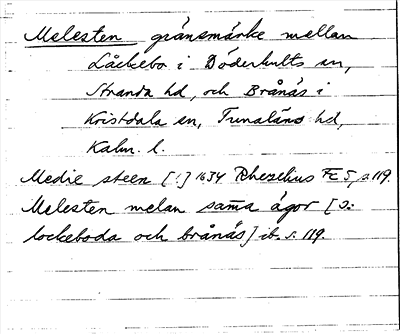 Melesten gränsmärke mellan
Låckebo i Döderhults sn,
Stranda hd, och Brånäs i
Kristdala sn, Tunaläns hd,
Kalm. l.
Medie steen [!] 1634 Rhezelius FE 5, s. 119.
Melesten melan sam̅a ägor [ɔ:
lockeboda och brånäs] ib. s. 119.